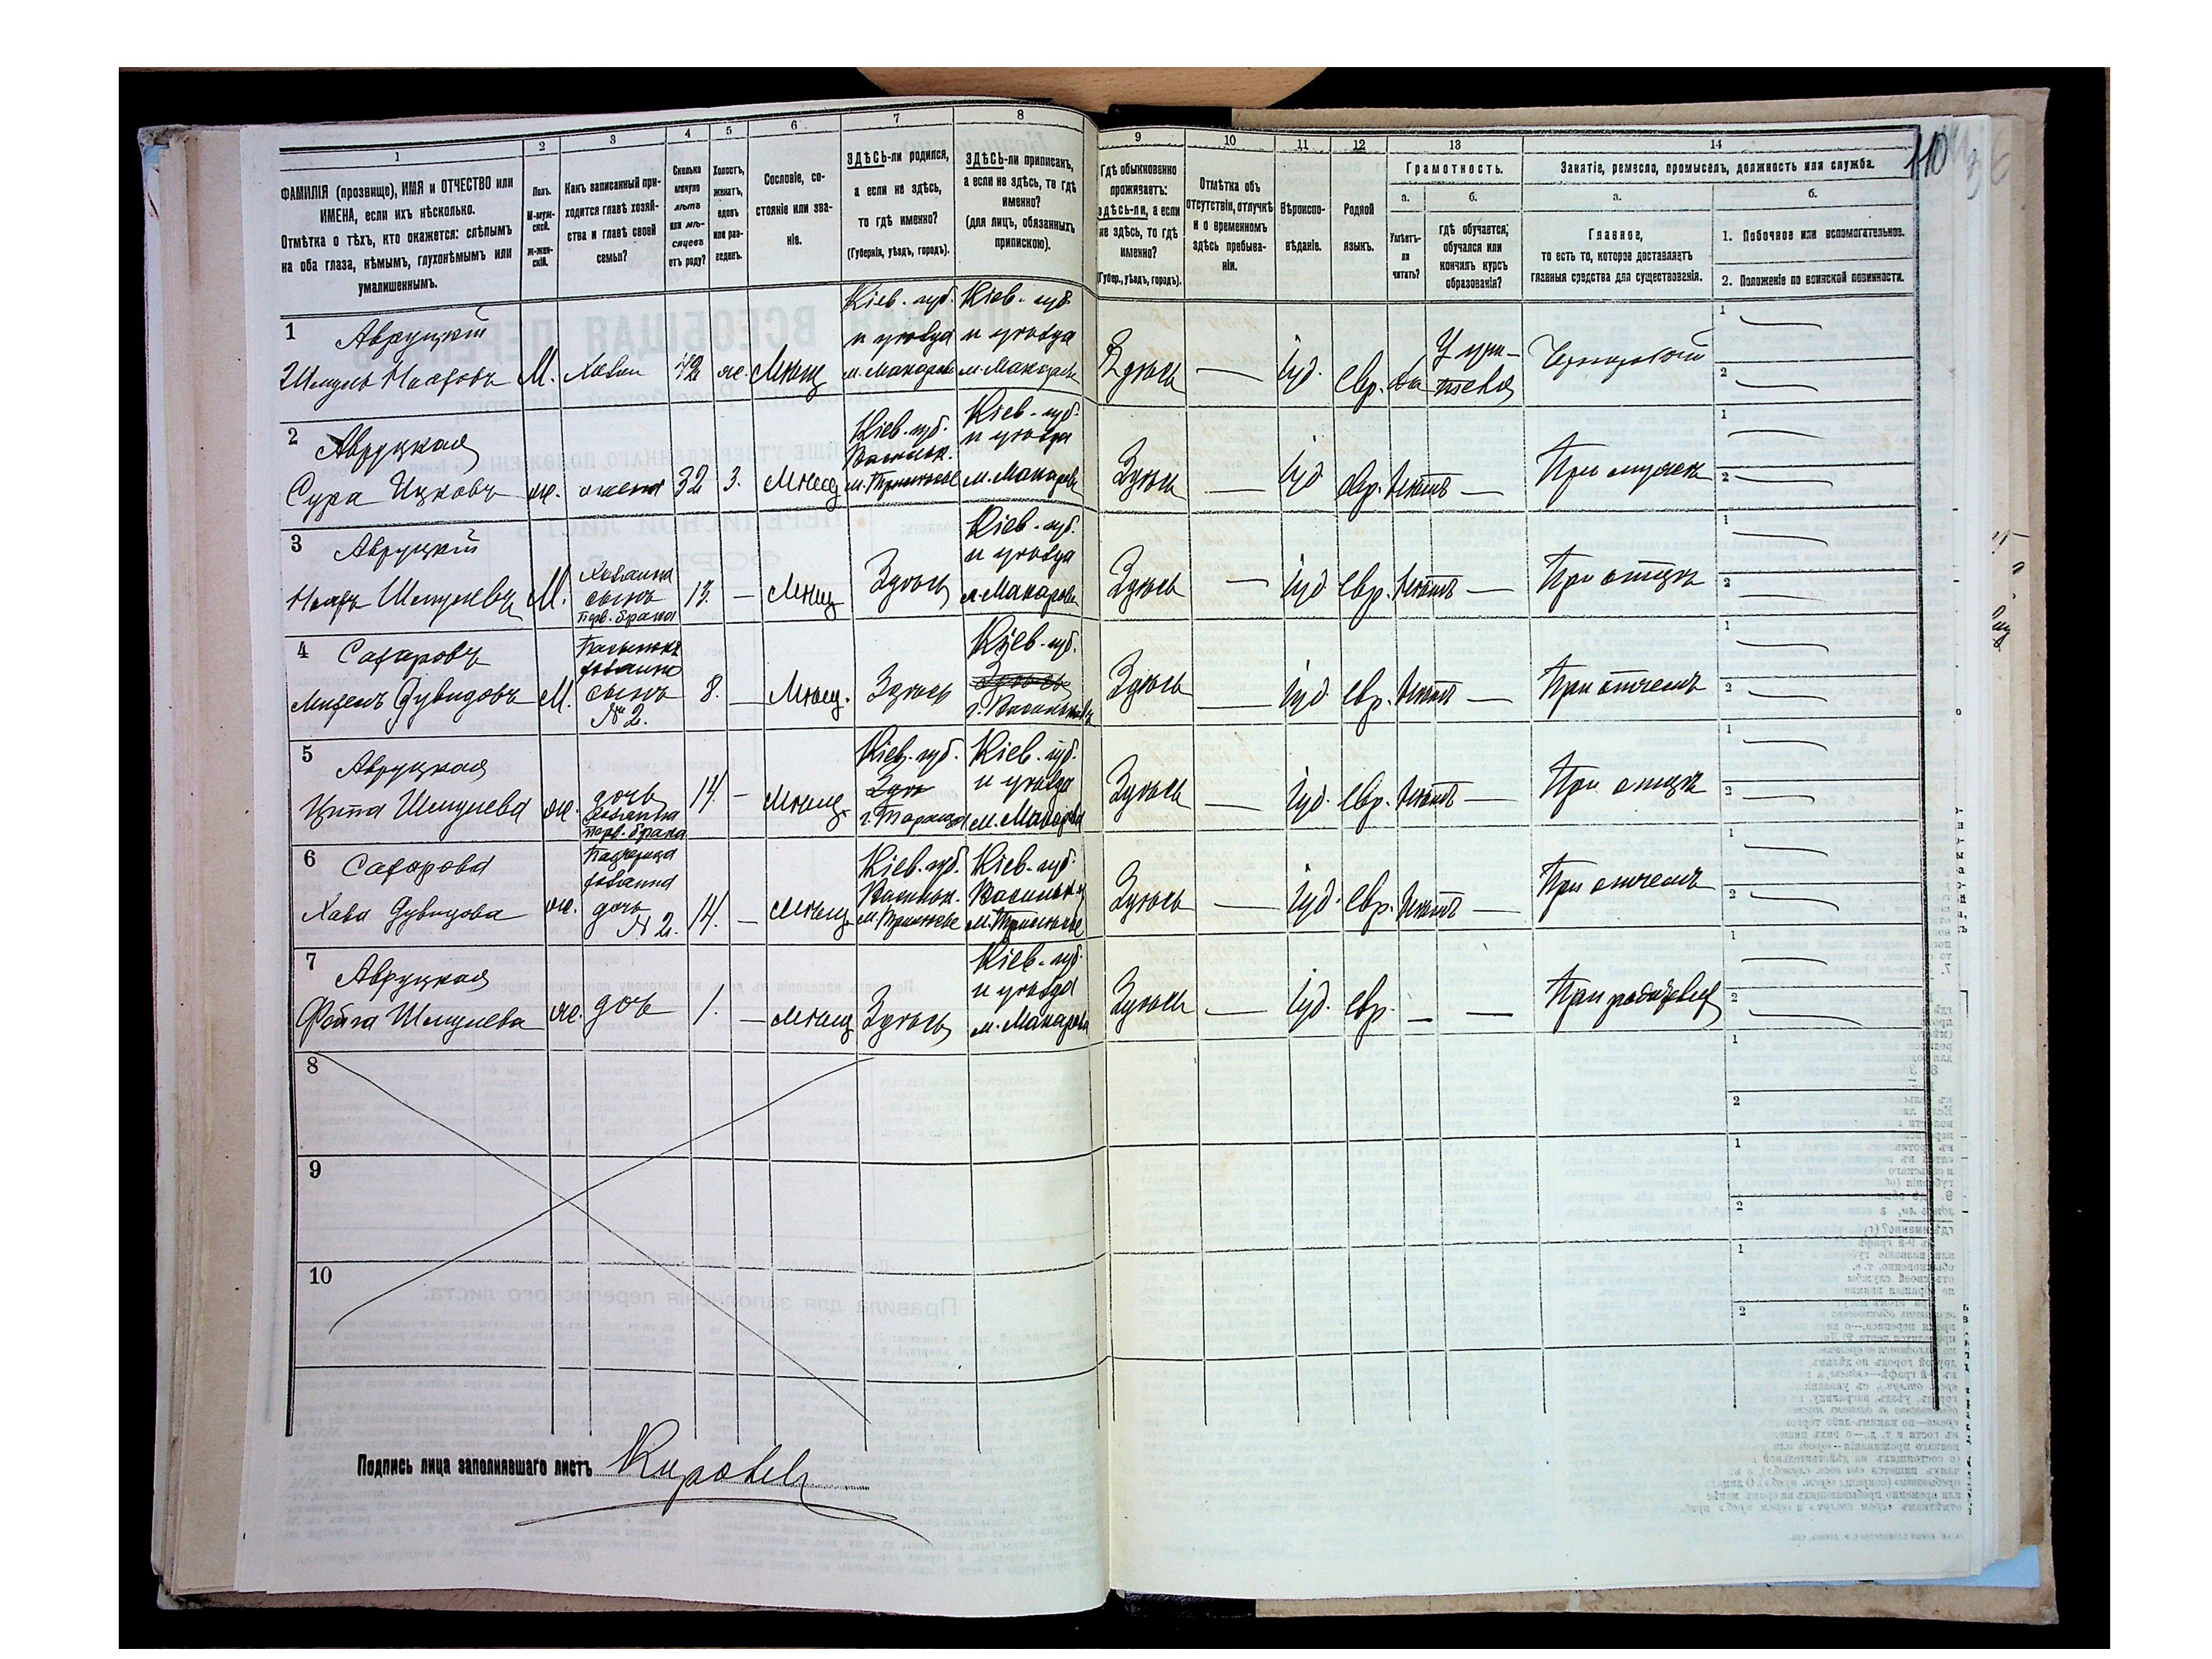 1 2 3 4 5 6 7 8
ФАМИЛІЯ (прозвище), ИМЯ и ОТЧЕСТВО или
ИМЕНА, если ихъ нѣсколько.
Отмѣтка о тѣхъ, кто окажется: слѣпымъ
на оба глаза, нѣмымъ, глухонѣмымъ или
умалишеннымъ.
Полъ.
М-муж-
ской.
Ж-жен-
скій.
Какъ записанный при-
ходится главѣ хозяй-
ства и главѣ своей
семьи?
Сколько
минуло
лѣтъ
или мѣ-
сяцевъ
отъ роду?
Холостъ,
женатъ,
вдовъ
или раз-
веденъ.
Сословіе, со-
стояніе или зва-
ніе.
ЗДѢСЬ-ли родился,
а если не здѣсь,
то гдѣ именно?
(Губернія, уѣздъ, городъ).
ЗДѢСЬ-ли приписанъ,
а если не здѣсь, то гдѣ
именно?
(для лицъ, обязанныхъ
припискою).
9 10 11 12 13 14
Гдѣ обыкновенно
проживаетъ:
здѣсь-ли, а если
не здѣсь, то гдѣ
именно?
(Губер., уѣздъ, городъ).
Отмѣтка объ
отсутствіи, отлучкѣ
и о временномъ
здѣсь пребыва-
ніи.
Вѣроиспо-
вѣданіе.
Родной
языкъ.
Грамотность.
а.
Умѣетъ-
ли
читать?
б.
гдѣ обучается,
обучался или
кончилъ курсъ
образованія?
Занятіе, ремесло, промыселъ, должность или служба.
а.
Главное,
то есть то, которое доставляетъ
главныя средства для существованія.
б.
1. Побочное или вспомогательное.
2. Положеніе по воинской повинности.
110
1 Авруцкій
Шмуль Мееровъ М. Хозяин 42 ж. Мѣщ
Кіев. губ.
и уѣзда
м. Макаров
Кіев. губ.
и уѣзда
м. Макаров
Здѣсь — Іуд. Евр. да
У учи-
теля
1
2
2 Авруцкая
Сура Ицковъ ж. жена 32 З. Мѣщ
Кіев. губ.
Васильк.
Кіев. губ.
и уѣзда
м. Макаров
Здѣсь — Іуд. Евр. Нѣтъ — При мужѣ
1
2
3 Авруцкій
Мееръ Шмулевъ М.
Хозяина
сынъ
перв. брака
13. — Мѣщ Здѣсь
Кіев. губ.
и уѣзда
м. Макаров
Здѣсь — Іуд Евр. Нѣтъ — При отцѣ
1
2
4 Сахаровъ
Дувидовъ М.
Пасынокъ
хозяина
сынъ
№ 2.
8. — Мѣщ. Здѣсь
Кіев. губ.
Здѣсь
г. Васильковъ
Здѣсь — Іуд Евр. Нѣтъ — При отчемѣ
1
2
5 Авруцкая
Цита Шмулева ж.
дочь
Хозяина
перв. брака
14. — Мѣщ.
Кіев. губ.
Здѣ
г. Тараща
Кіев. губ.
и уѣзда
м. Макаров
Здѣсь — Іуд. Евр. Нѣтъ — При отцѣ
1
2
6 Сахарова
Хава Дувидова ж.
Падчерица
хозяина
дочь
№ 2.
14. — Мѣщ.
Кіев. губ.
Васильк.
Кіев. губ.
Васильк. у
Здѣсь — Іуд. Евр. Нѣтъ — При отчемѣ
1
2
7 Авруцкая
Фейга Шмулева ж. дочь 1. — Мѣщ Здѣсь
Кіев. губ.
и уѣзда
м. Макаров
Здѣсь — Іуд. Евр. — —
1
2
8
1
2
9
1
2
10
1
2
Подпись лица заполнявшаго листъ